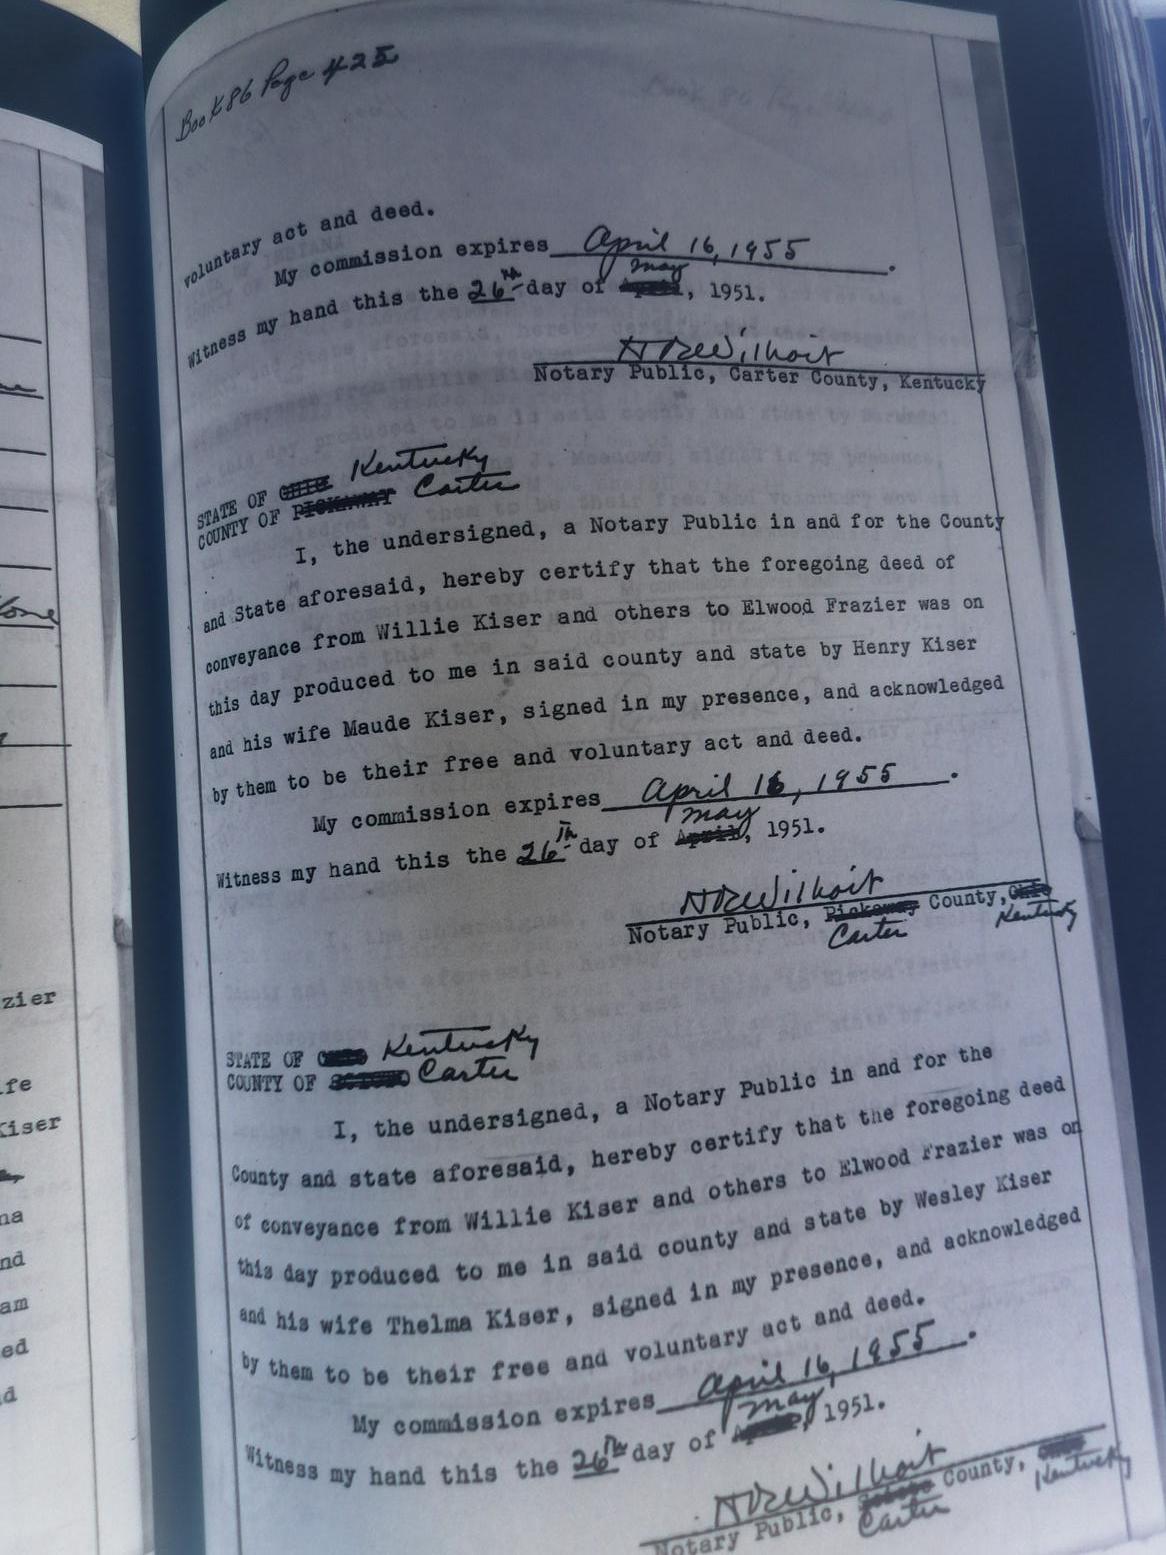 Book 86 Page 425
voluntary act and deed.
My commission expires April 16, 1955.
may
Witness my hand this the 26th day of April, 1951.
Notary Public, Carter County, Kentucky
STATE OF OHIO Kentucky
COUNTY OF PICKAWAY Carter
I, the undersigned, a Notary Public in and for the County
and State aforesaid, hereby certify that the foregoing deed of
conveyance from Willie Kiser and others to Elwood Frazier was on
this day produced to me in said county and state by Henry Kiser
and his wife Maude Kiser, signed in my presence, and acknowledged
by them to be their free and voluntary act and deed.
My commission expires April 16, 1955.
may
Witness my hand this the 26th day of April, 1951.
HRWilhoit
Notary Public, Pickaway County, Ohio
Carter Kentucky
STATE OF Kentucky
COUNTY OF Carter
I, the undersigned, a Notary Public in and for the
County and state aforesaid, hereby certify that the foregoing deed
of conveyance from Willie Kiser and others to Elwood Frazier was on
this day produced to me in said county and state by Wesley Kiser
and his wife Thelma Kiser, signed in my presence, and acknowledged
by them to be their free and voluntary act and deed.
My commission expires April 16, 1955.
may
Witness my hand this the 26th day of , 1951.
HRWilhoit
Notary Public, County,
Carter Kentucky
zier
ife
Kiser
na
nd
am
ed
d